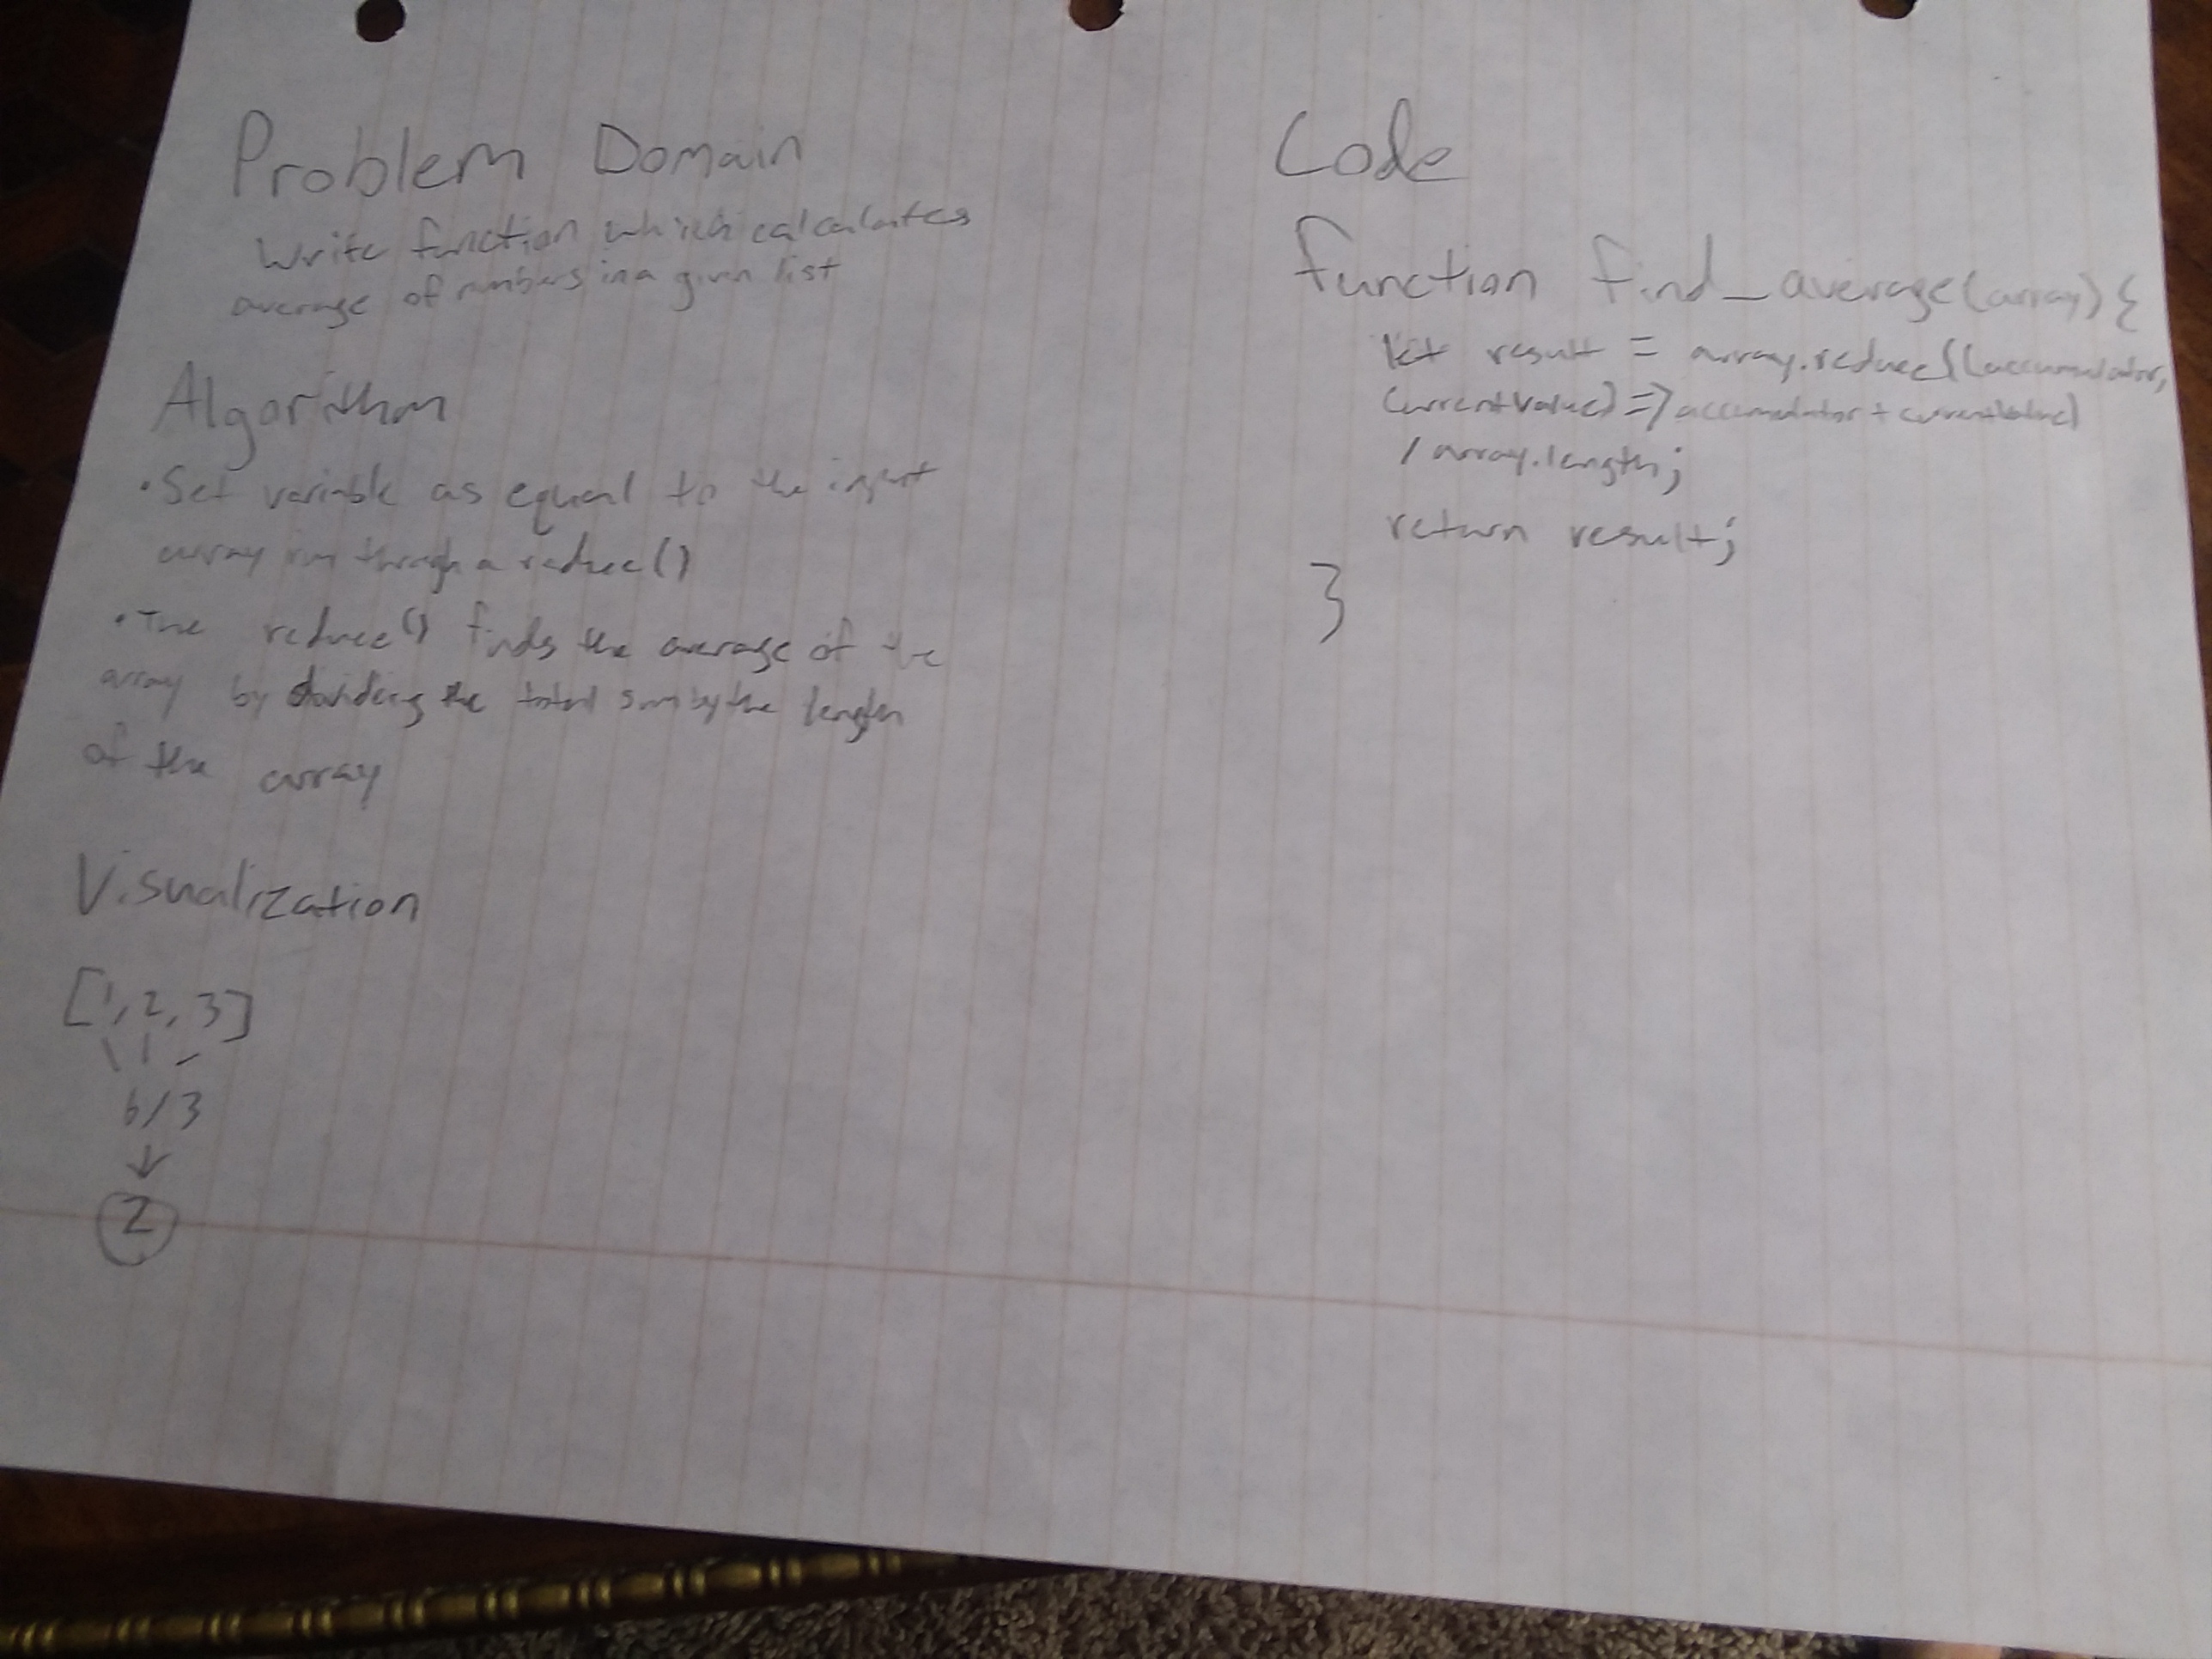 Problem Domain
Write function which calculates
average of numbers in a given list
Algorithm
• Set variable as equal to the input
array run through a reduce()
• The reduce() finds the average of the
array by dividing the total sum by the length
of the array
Visualization
[1, 2, 3]
6/3
2
Code
function find_average(array){
let result = array.reduce((accumulator,
currentValue) => accumulator + currentValue)
/ array.length;
return result;
}